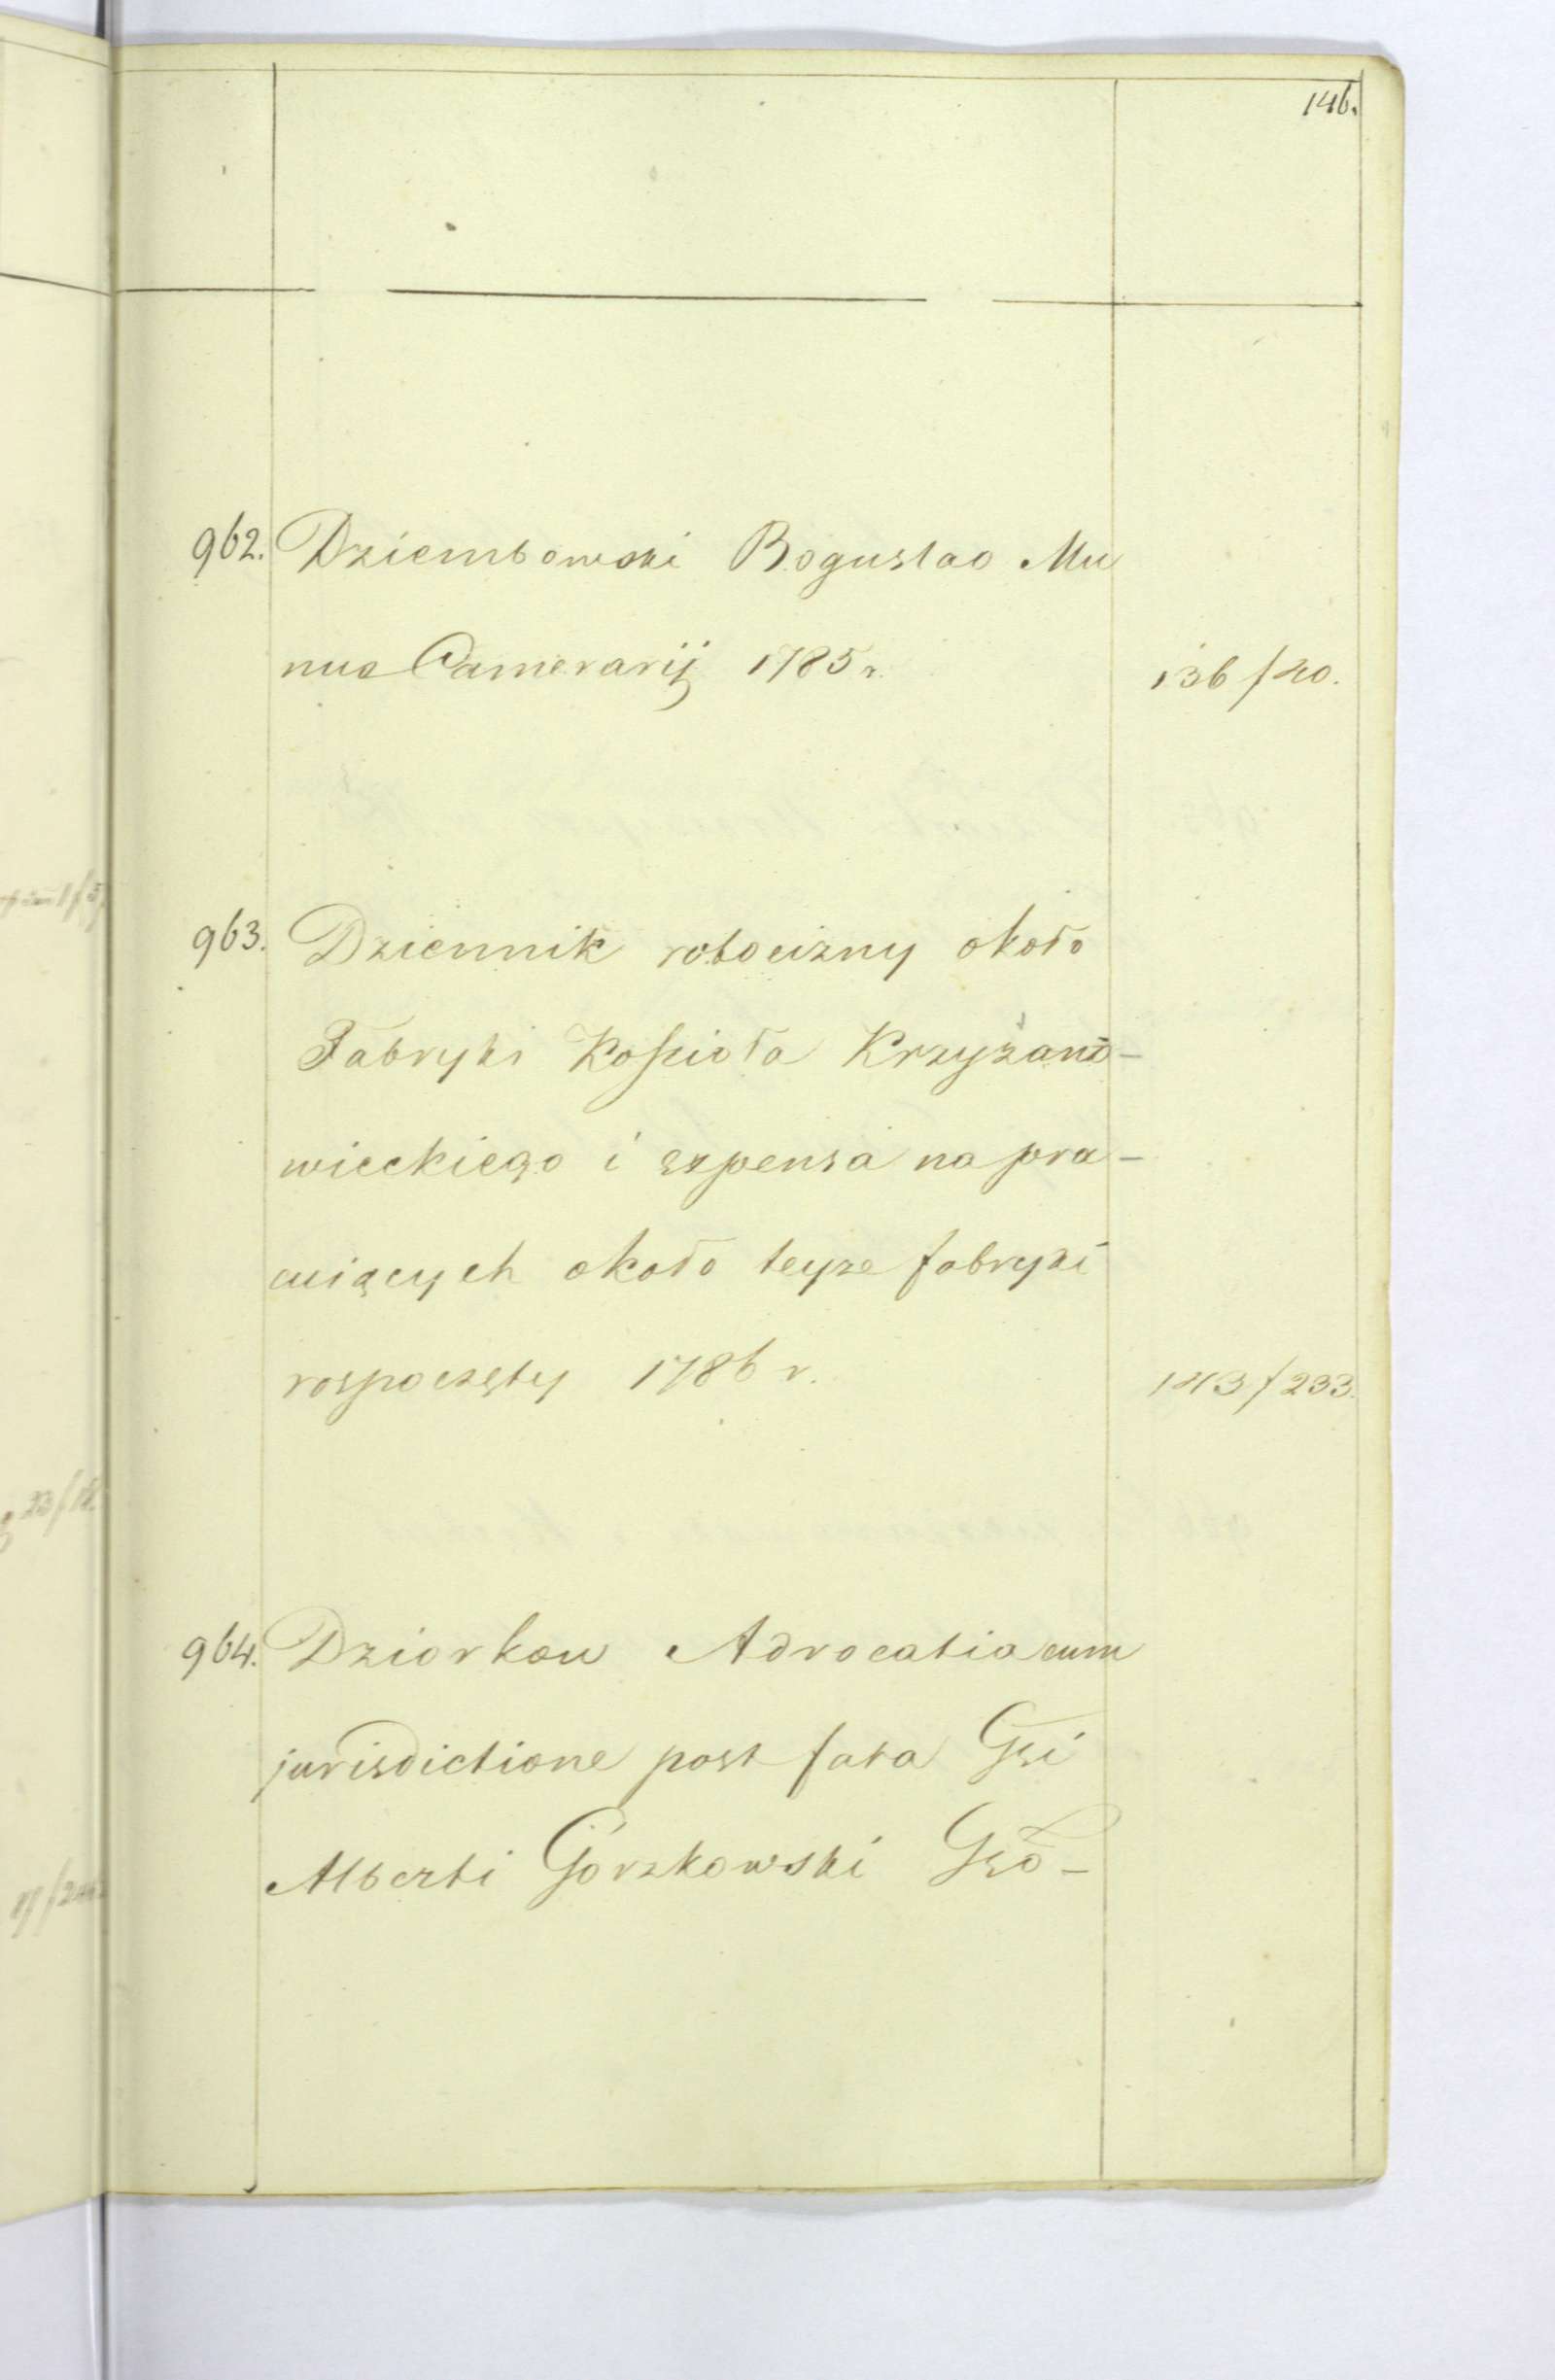 146.
962. Dziembowski Bogusłao Mu
nus Camerarij 1785 r. 136/40.
963. Dziennik robocizny około
Fabryki Kościoła Krzyżano-
wieckiego i expensa na pra-
cuiących około teyze fabryki
rospoczęty 1786 r. 143/233.
964. Dziorkow Advocatia cum
jurisdictione post fata Gsi
Alberti Gorzkowski Gso-